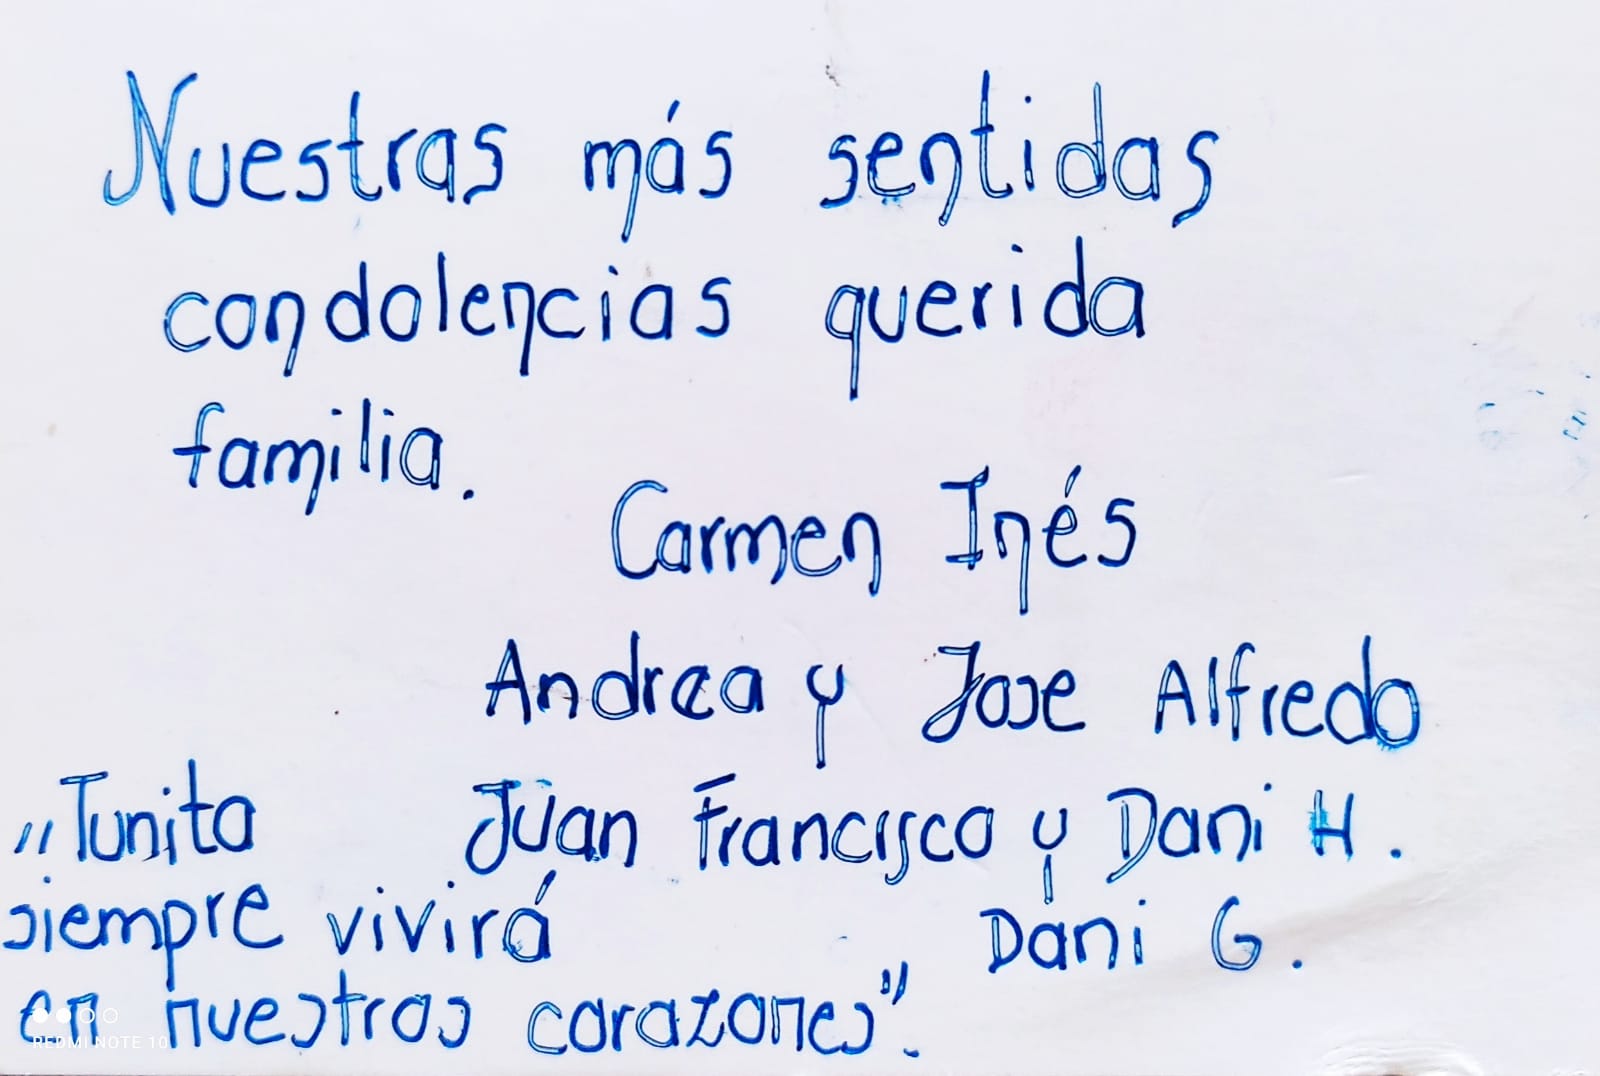 Nuestras más sentidas
condolencias querida
familia.
Carmen Inés
Andrea y Jose Alfredo
Juan Francisco y Dani H.
Dani G.
"Tunita
siempre vivirá
en nuestros corazones".
REDMI NOTE 10